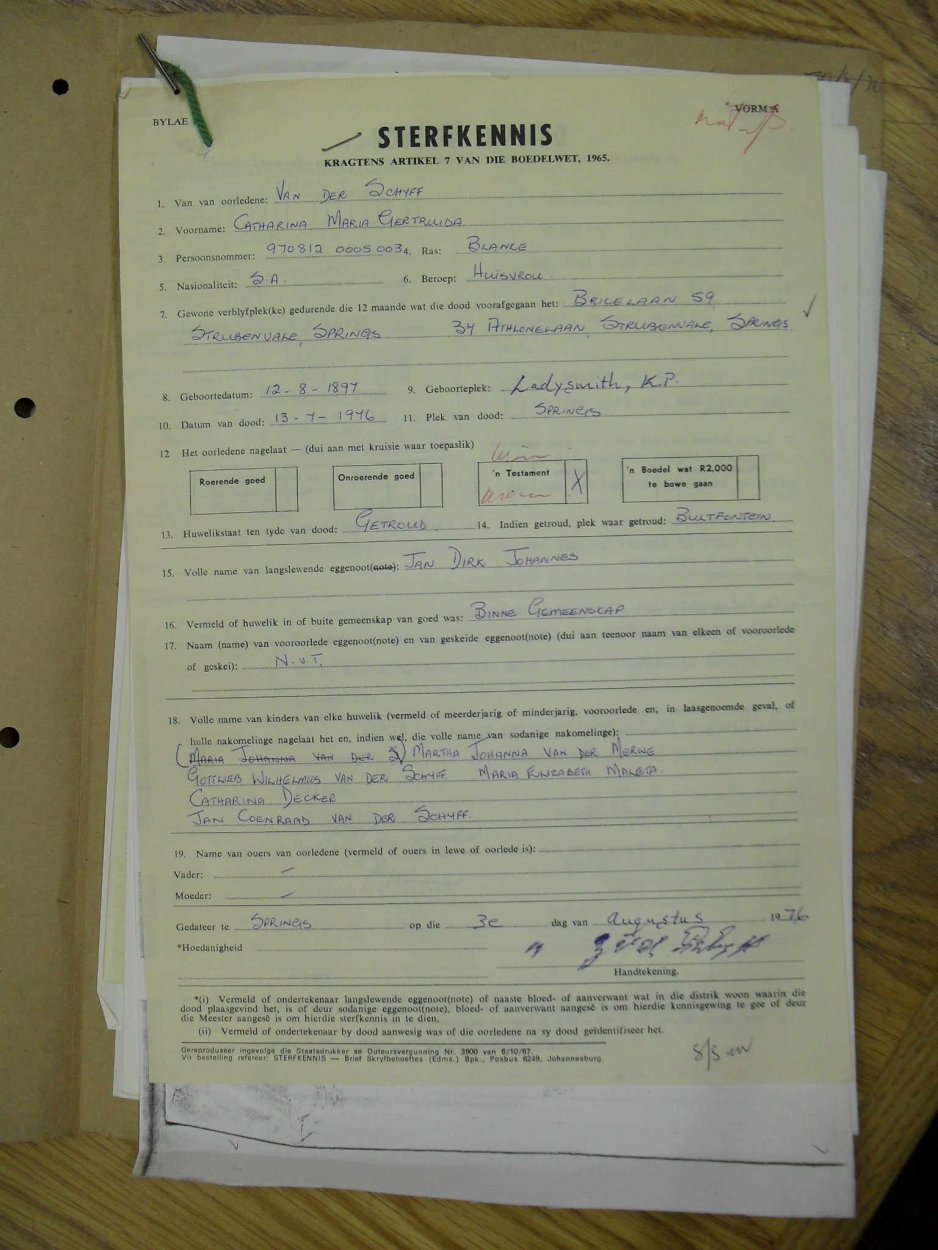 BYLAE
VORM A
STERFKENNIS
KRAGTENS ARTIKEL 7 VAN DIE BOEDELWET, 1965.
1. Van van oorledene: VAN DER SCHYFF
2. Voorname: CATHARINA MARIA GERTRUIDA
3. Persoonsnommer: 970812 0005 003 4. Ras: BLANKE
5. Nasionaliteit: S.A. 6. Beroep: HUISVROU
7. Gewone verblyfplek(ke) gedurende die 12 maande wat die dood voorafgegaan het: BRICELAAN 59
STRUBENVALE, SPRINGS 34 ATHLONELAAN, STRUBENVALE, SPRINGS
8. Geboortedatum: 12-8-1897 9. Geboorteplek: Ladysmith, K.P.
10. Datum van dood: 13-7-1976 11. Plek van dood: SPRINGS
12 Het oorledene nagelaat — (dui aan met kruisie waar toepaslik)
Roerende goed Onroerende goed 'n Testament X 'n Boedel wat R2,000
te bowe gaan
13. Huwelikstaat ten tyde van dood: GETROUD 14. Indien getroud, plek waar getroud: BULTFONTEIN
15. Volle name van langslewende eggenoot(note): JAN DIRK JOHANNES
16. Vermeld of huwelik in of buite gemeenskap van goed was: BINNE GEMEENSKAP
17. Naam (name) van vooroorlede eggenoot(note) en van geskeide eggenoot(note) (dui aan teenoor naam van elkeen of vooroorlede
of geskei): N.v.T.
18. Volle name van kinders van elke huwelik (vermeld of meerderjarig of minderjarig, vooroorlede en, in laasgenoemde geval, of
hulle nakomelinge nagelaat het en, indien wel, die volle name van sodanige nakomelinge):
(MARIA JOHANNA VAN DER S) MARTHA JOHANNA VAN DER MERWE
GOTTLIEB WILHELMUS VAN DER SCHYFF MARIA
CATHARINA DECKER
JAN COENRAAD VAN DER SCHYFF.
19. Name van ouers van oorledene (vermeld of ouers in lewe of oorlede is):
Vader: —
Moeder: —
Gedateer te SPRINGS op die 3e dag van Augustus 1976
*Hoedanigheid
Handtekening.
*(i) Vermeld of ondertekenaar langslewende eggenoot(note) of naaste bloed- of aanverwant wat in die distrik woon waarin die
dood plaasgevind het, is of deur sodanige eggenoot(note), bloed- of aanverwant aangesê is om hierdie kennisgewing te gee of deur
die Meester aangesê is om hierdie sterfkennis in te dien.
(ii) Vermeld of ondertekenaar by dood aanwesig was of die oorledene na sy dood geïdentifiseer het.
Gereproduseer ingevolge die Staatsdrukker se Outeursvergunning Nr. 3900 van 6/10/67.
Vir bestelling refereer: STERFKENNIS — Brief Skryfbehoeftes (Edms.) Bpk., Posbus 6249, Johannesburg.